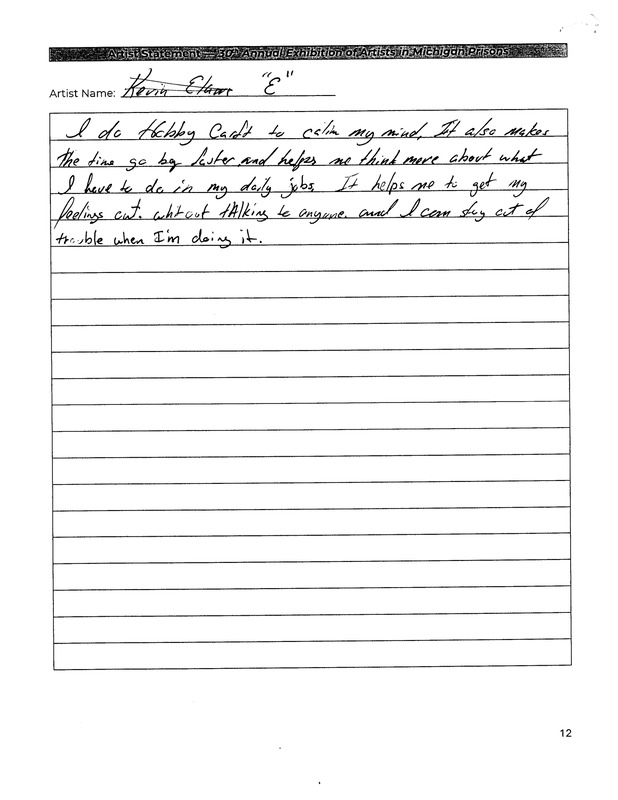 Artist Statement — 30th Annual Exhibition of Artists in Michigan Prisons
Artist Name: Kevin "E"
I do Hobby Caraft to calm my mind, It also makes
the time go by faster and helps me think more about what
I have to do in my daily jobs. It helps me to get my
feelings out. without tAlking to anyone. and I can stay out of
trouble when I'm doing it.
12